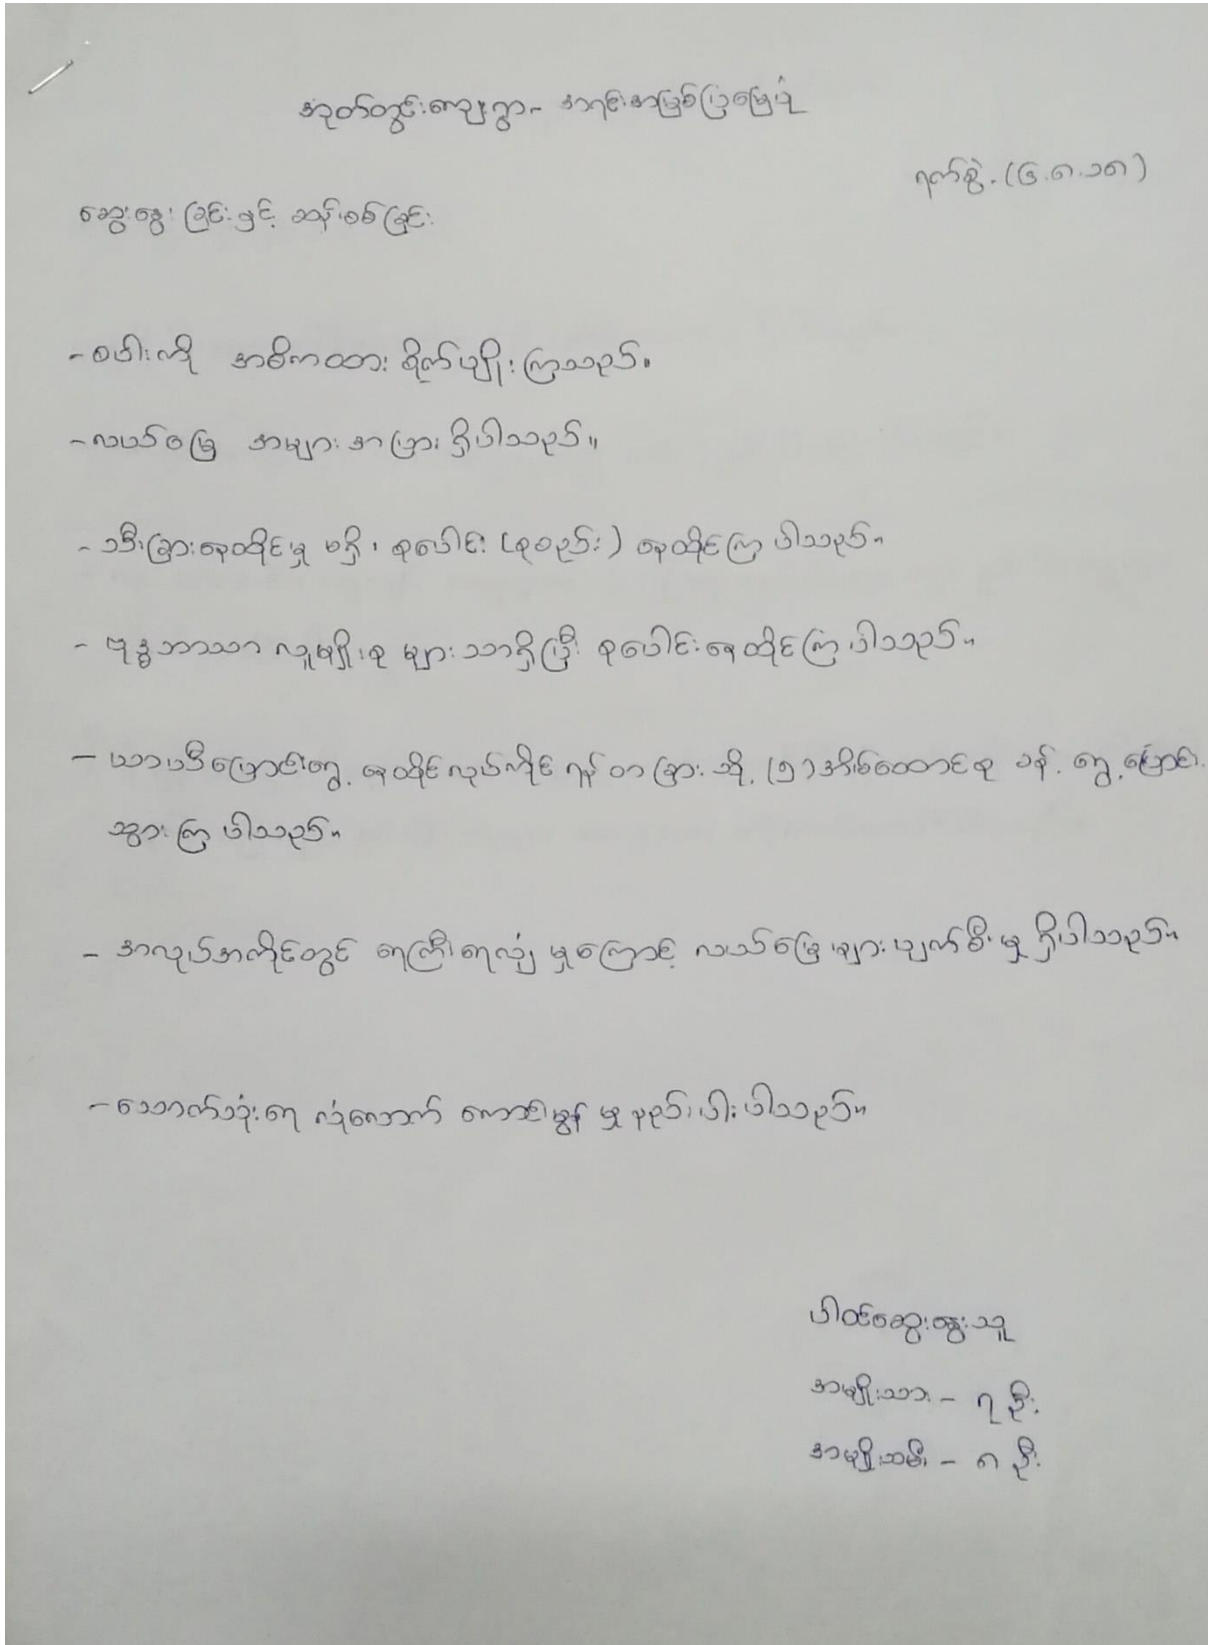 အုတ်တွင်းကျေးရွာ - အရင်းအမြစ်ပြမြေပုံ
ရက်စွဲ. (၆.၈.၁၈)
ဆွေးနွေးခြင်းနှင့် ဆန်းစစ်ခြင်း
- စပါးကို အဓိကထား စိုက်ပျိုးကြသည်။
- လယ်မြေ အများအပြား ရှိပါသည်။
- သီးခြားနေထိုင်မှု မရှိ၊ စုပေါင်း (စုစည်း) နေထိုင်ကြပါသည်။
- ဗုဒ္ဓဘာသာ လူမျိုးစု များသာရှိပြီး စုပေါင်းနေထိုင်ကြပါသည်။
- ယာယီပြောင်းရွှေ့ နေထိုင်လုပ်ကိုင်ရန် တခြားသို့ (၅) အိမ်ထောင်စု ခန့် ရွှေ့ပြောင်း
သွားကြပါသည်။
- အလုပ်အကိုင်တွင် ရေကြီးရေလျှံ မှုကြောင့် လယ်မြေများပျက်စီးမှု ရှိပါသည်။
- သောက်သုံးရေ လုံလောက် ကောင်းမွန် မှု နည်းပါးပါသည်။
ပါဝင်ဆွေးနွေးသူ
အမျိုးသား - ၇ ဦး
အမျိုးသမီး - ၈ ဦး